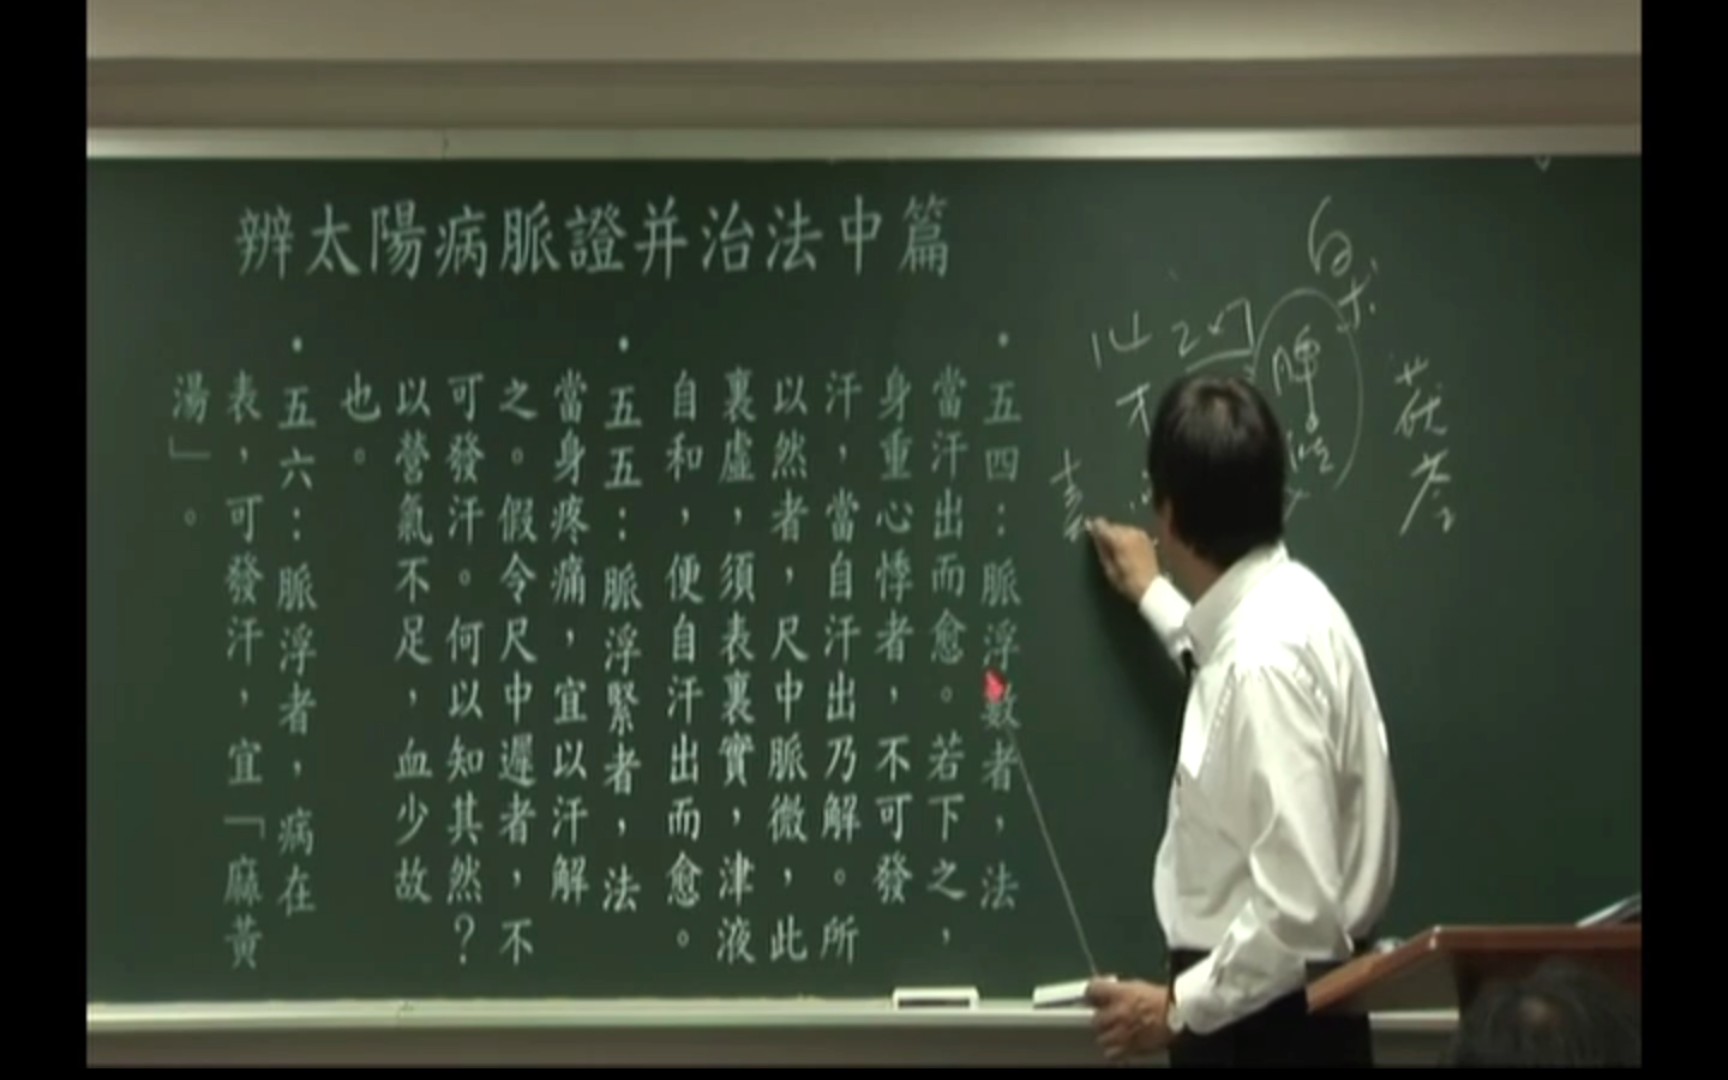 辨太陽病脈證并治法中篇
• 五四：脈浮數者，法
當汗出而愈。若下之，
身重心悸者，不可發
汗，當自汗出乃解。所
以然者，尺中脈微，此
裏虛，須表裏實，津液
自和，便自汗出而愈。
• 五五：脈浮緊者，法
當身疼痛，宜以汗解
之。假令尺中遲者，不
可發汗。何以知其然？
以營氣不足，血少故
也。
• 五六：脈浮者，病在
表，可發汗，宜「麻黃
湯」。
白朮
茯苓
脾